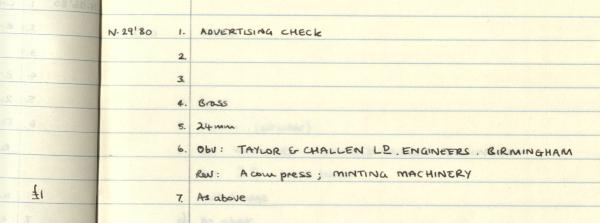 N. 29'80 1. ADVERTISING CHECK
2.
3
4. Brass
5. 24mm
6. Obv: TAYLOR & CHALLEN LD. ENGINEERS. BIRMINGHAM
Rev: A coin press; MINTING MACHINERY
£1 7. As above